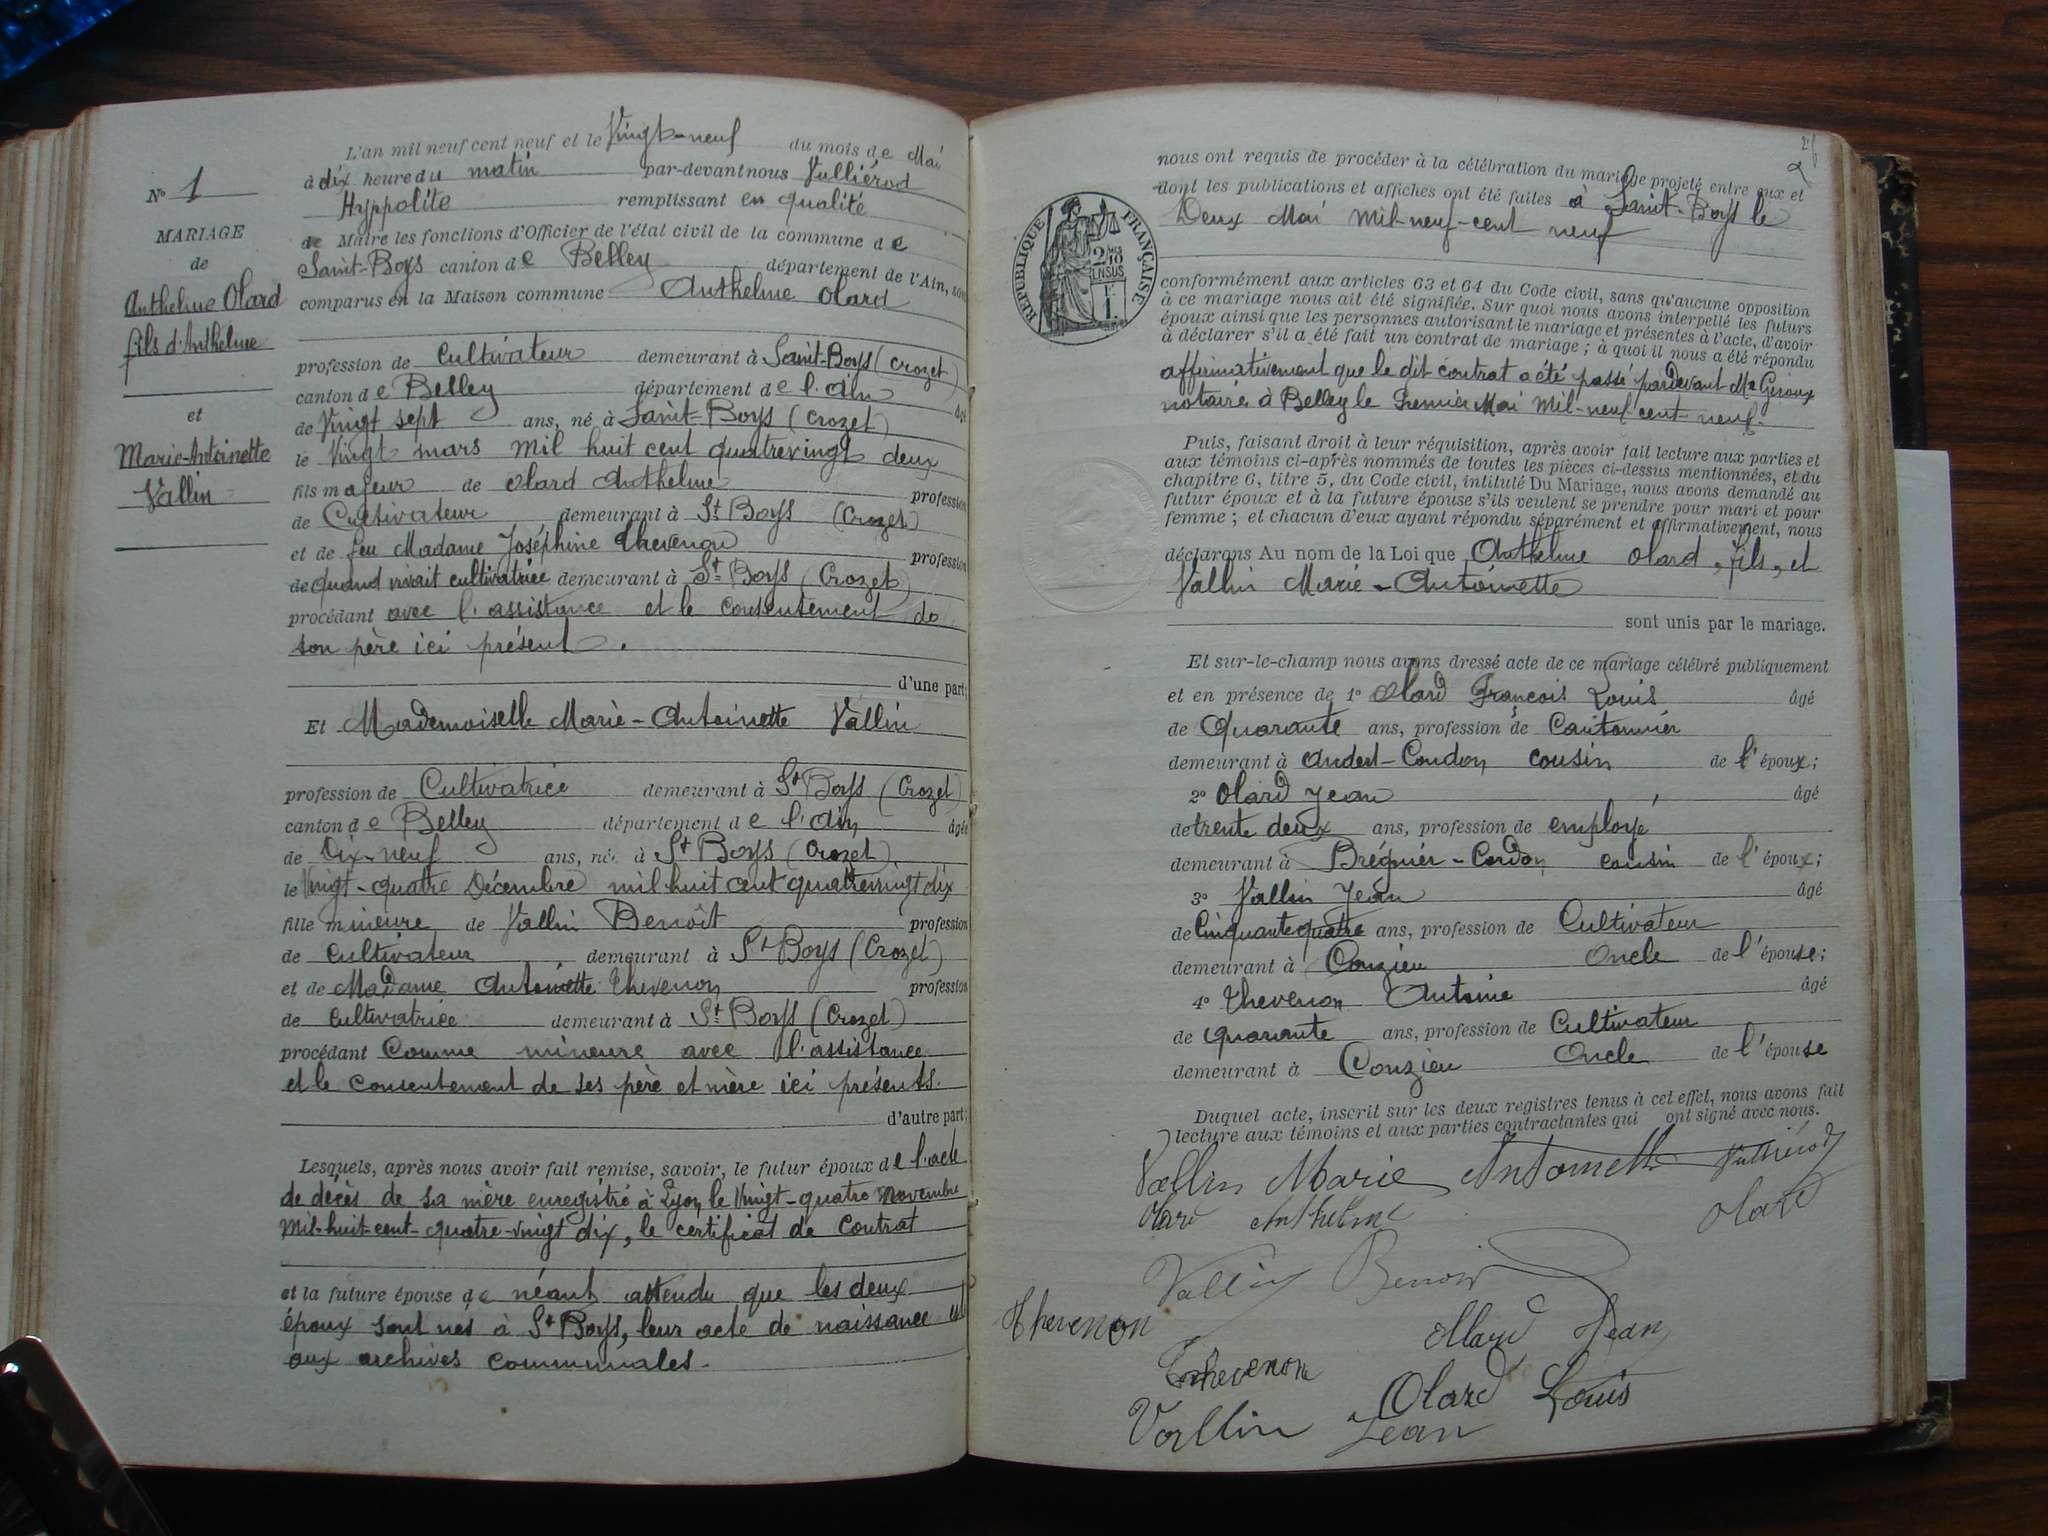 N° 1
MARIAGE
de
Anthelme Olard
fils d'Anthelme
et
Marie-Antoinette
Vallin
L'an mil neuf cent neuf et le Vingt-neuf du mois de Mai
à dix heure du matin par-devant nous Vulliérod
Hyppolite remplissant en qualité
de Maire les fonctions d'Officier de l'état civil de la commune de
Saint-Boys canton de Belley département de l'Ain, sont
comparus en la Maison commune Anthelme Olard
profession de Cultivateur demeurant à Saint-Boys (Crozet)
canton de Belley département de l'Ain âgé
de Vingt sept ans, né à Saint-Boys (Crozet)
le Vingt mars mil huit cent quatrevingt deux
fils majeur de Olard Anthelme profession
de Cultivateur demeurant à St Boys (Crozet)
et de feu Madame Joséphine Thevenon profession
de quand vivait cultivatrice demeurant à St Boys (Crozet)
procédant avec l'assistance et le consentement de
son père ici présent.
d'une part;
Et Mademoiselle Marie-Antoinette Vallin
profession de Cultivatrice demeurant à St Boys (Crozet)
canton de Belley département de l'Ain âgée
de Dix-neuf ans, née à St Boys (Crozet)
le Vingt-quatre Décembre mil huit cent quatrevingt dix
fille mineure de Vallin Benoît profession
de cultivateur demeurant à St Boys (Crozet)
et de Madame Antoinette Thevenon profession
de cultivatrice demeurant à St Boys (Crozet)
procédant Comme mineure avec l'assistance
et le consentement de ses père et mère ici présents.
d'autre part;
Lesquels, après nous avoir fait remise, savoir, le futur époux de l'acte
de décès de sa mère enregistré à Lyon le Vingt-quatre novembre
mil-huit-cent-quatre-vingt dix, le certificat de Contrat
et la future épouse de néant attendu que les deux
époux sont nés à St Boys, leur acte de naissance est
aux archives communales.
nous ont requis de procéder à la célébration du mariage projeté entre eux et
dont les publications et affiches ont été faites à Saint-Boys le
Deux Mai mil-neuf-cent neuf
RÉPUBLIQUE FRANÇAISE
2/10 EN SUS
1 F.
conformément aux articles 63 et 64 du Code civil, sans qu'aucune opposition
à ce mariage nous ait été signifiée. Sur quoi nous avons interpellé les futurs
époux ainsi que les personnes autorisant le mariage et présentes à l'acte, d'avoir
à déclarer s'il a été fait un contrat de mariage; à quoi il nous a été répondu
affirmativement que le dit contrat a été passé pardevant Me Giroux
notaire à Belley le Premier Mai mil-neuf cent-neuf.
Puis, faisant droit à leur réquisition, après avoir fait lecture aux parties et
aux témoins ci-après nommés de toutes les pièces ci-dessus mentionnées, et du
chapitre 6, titre 5, du Code civil, intitulé Du Mariage, nous avons demandé au
futur époux et à la future épouse s'ils veulent se prendre pour mari et pour
femme; et chacun d'eux ayant répondu séparément et affirmativement, nous
déclarons Au nom de la Loi que Anthelme Olard, fils, et
Vallin Marie-Antoinette
sont unis par le mariage.
Et sur-le-champ nous avons dressé acte de ce mariage célébré publiquement
et en présence de 1° Olard François Louis âgé
de Quarante ans, profession de Cantonnier
demeurant à Andert-Condon cousin de l'époux;
2° Olard Jean âgé
de trente deux ans, profession de employé
demeurant à Brégnier-Cordon cousin de l'époux;
3° Vallin Jean âgé
de Cinquante quatre ans, profession de Cultivateur
demeurant à Conzieu Oncle de l'épouse;
4° Thevenon Antoine âgé
de quarante ans, profession de Cultivateur
demeurant à Conzieu Oncle de l'épouse
Duquel acte, inscrit sur les deux registres tenus à cet effet, nous avons fait
lecture aux témoins et aux parties contractantes qui ont signé avec nous.
Vallin Marie Antoinette Vulliérod
Olard Anthelme Olard
Vallin Benoit
Thevenon Ollard Jean
Thevenon
Olard Louis
Vallin Jean